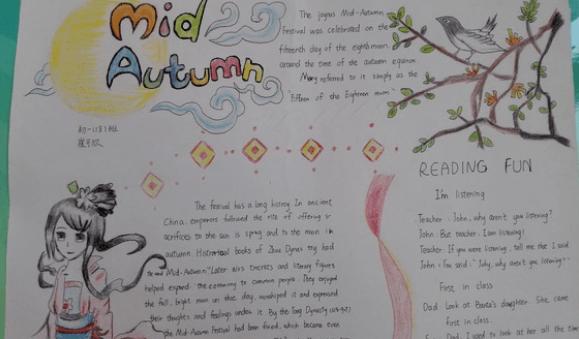 Mid
Autumn
The joyous Mid-Autumn
Festival was celebrated on the
fifteenth day of the eighth moon,
around the time of the autumn equinox
Many referred to it simply as the
"Fifteen of the Eighteen moon."
The festival has a long history. In ancient
China, emperors followed the rite of offering
sacrifices to the sun in spring and to the moon in
autumn. Historical books of Zhou Dynas try had
Mid-Autumn" Later aris tocrats and literary figures
helped expand the ceremony to common people. They enjoyed
the full, bright moon on that day, worshiped it and expressed
their thoughts and feelings under it. By the Tang Dynasty
the Mid-Autumn Festival had been fixed, which became even
READING FUN
I'm listening
Teacher: John, why aren't you listening?
John: But teacher, I am listening!
Teacher: If you were listening, tell me the I said
John: You said: "John, why aren't you listening?"
First in class
Dad: Look at daughter. She came
first in class.
Dad. I used to look at her all the time